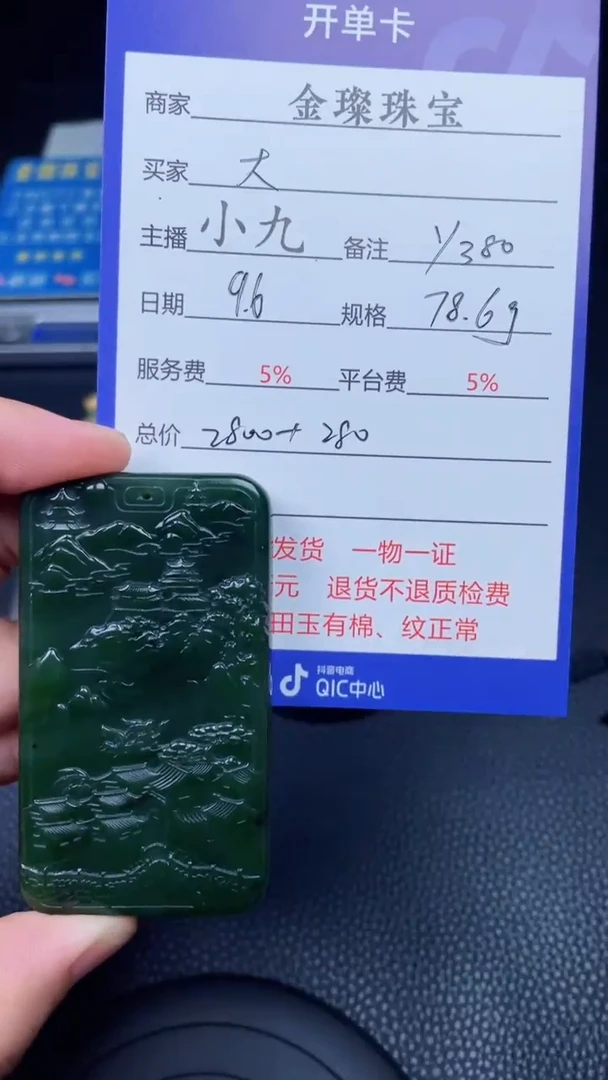 开单卡
商家 金璨珠宝
买家 大
主播 小九 备注 1/380
日期 9.6 规格 78.6g
服务费 5% 平台费 5%
总价 2800+280
发货 一物一证
元 退货不退质检费
田玉有棉、纹正常
抖音电商
QIC中心